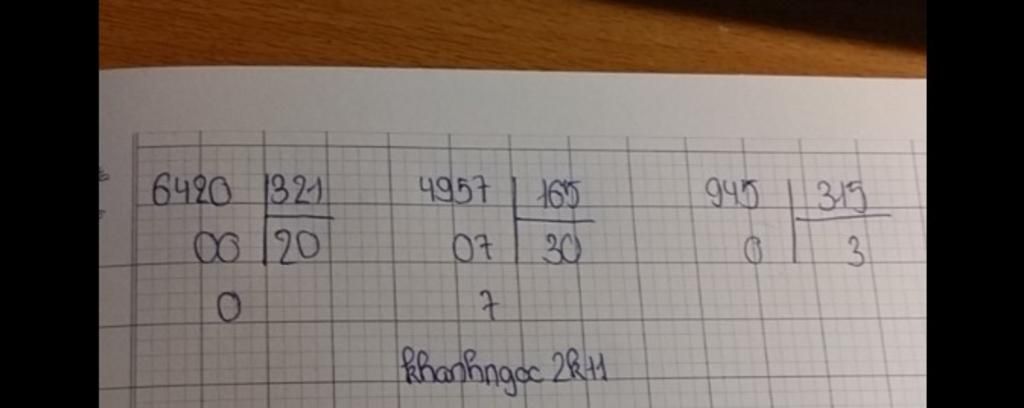 6420 321 4957 165 945 315
00 20 07 30 0 3
0 7
khanhngoc 2k11